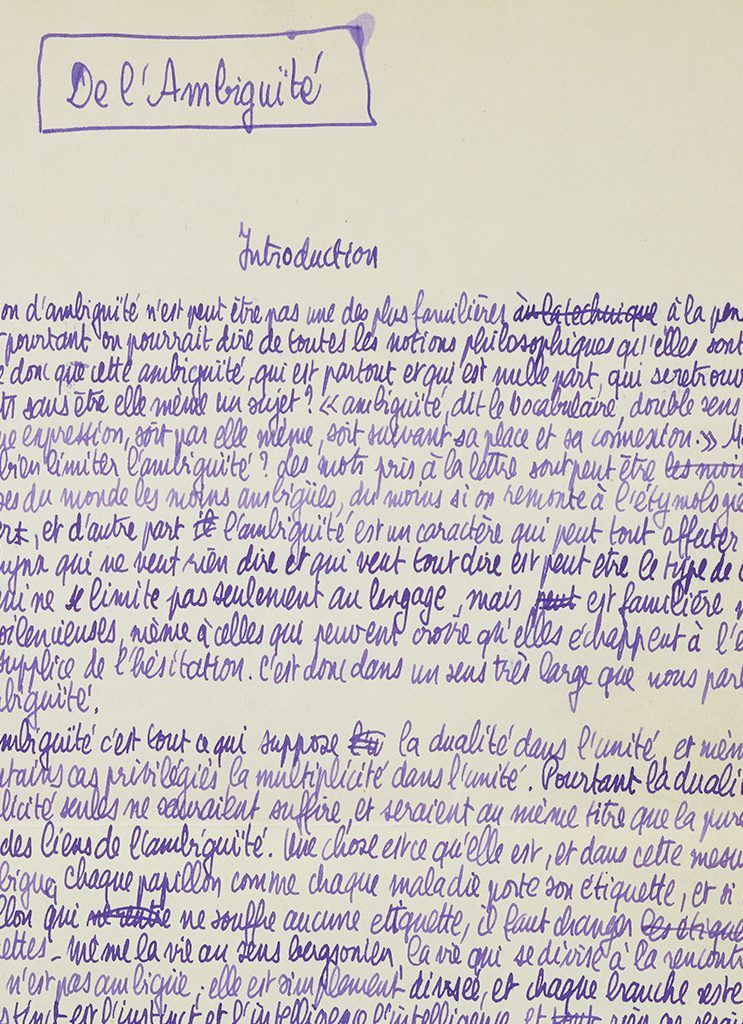 De l'Ambiguïté
Introduction
on d'ambiguïté n'est peut être pas une des plus familières à la technique à la pen
pourtant on pourrait dire de toutes les notions philosophiques qu'elles sont
donc que cette ambiguïté, qui est partout et qui est nulle part, qui se retrouv
sans être elle même un sujet ? « ambiguïté, dit le Vocabulaire, double sens
ue expression, soit par elle même, soit suivant sa place et sa connexion. » M
bien limiter l'ambiguïté ? des mots pris à la lettre sont peut être les moin
ses du monde les moins ambigües, du moins si on remonte à l'étymologie
, et d'autre part il l'ambiguïté est un caractère qui peut tout affecter
qui ne veut rien dire et qui veut tout dire est peut être le type de
ne se limite pas seulement au langage, mais peut est familière
silencieuses, même à celles qui peuvent croire qu'elles échappent à l'é
supplice de l'hésitation. C'est donc dans un sens très large que nous parl
mbiguïté.
mbiguïté c'est tout ce qui suppose la dualité dans l'unité, et mêm
rtains cas privilégiés la multiplicité dans l'unité. Pourtant la duali
licité seules ne sauraient suffire, et seraient au même titre que la pure
des liens de l'ambiguïté. Une chose est ce qu'elle est, et dans cette mesu
bigue, chaque papillon comme chaque maladie porte son étiquette, et si
llon qui ne souffre aucune étiquette, il faut changer les étique
ettes - même la vie au sens bergsonien la vie qui se divise à la rencontr
n'est pas ambigüe ; elle est simplement divisée, et chaque branche reste
stinct est l'instinct et l'intelligence l'intelligence, et tout rien ne serai